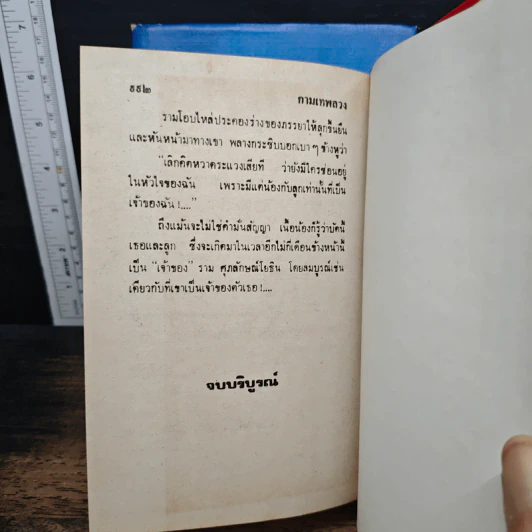 ๕๕๒
กามเทพลวง
รามโอบไหล่ประคองร่างของภรรยาให้ลุกขึ้นยืน
และหันหน้ามาทางเขา พลางกระซิบบอกเบา ๆ ข้างหูว่า
"เลิกคิดหวาดระแวงเสียที ว่ายังมีใครซ่อนอยู่
ในหัวใจของฉัน เพราะมีแค่น้องกับลูกเท่านั้นที่เป็น
เจ้าของฉัน !...."
ถึงแม้นจะไม่ใช่คำมั่นสัญญา เนื้อน้องก็รู้ว่าบัดนี้
เธอและลูก ซึ่งจะเกิดมาในเวลาอีกไม่กี่เดือนข้างหน้านี้
เป็น "เจ้าของ" ราม ศุภลักษณ์โยธิน โดยสมบูรณ์เช่น
เดียวกับที่เขาเป็นเจ้าของตัวเธอ !....
จบบริบูรณ์
7